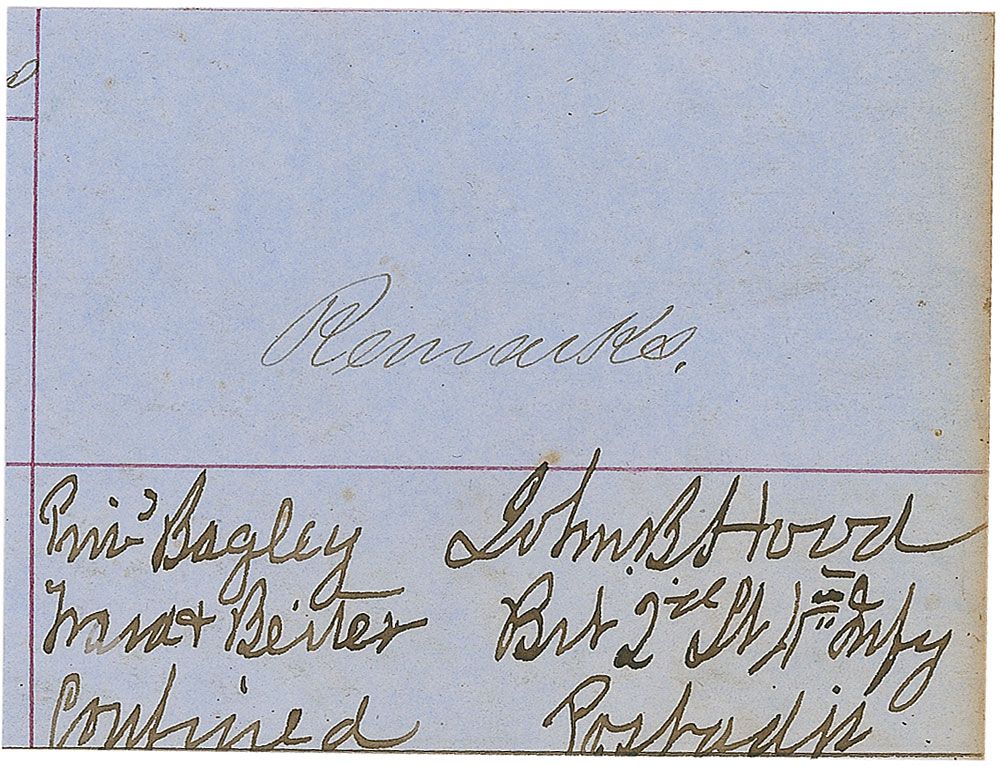 Remarks.
Privs Bagley John B Hood
Ward & Beiter Brt 2nd Lt 4th Infy
Confined Post adjt